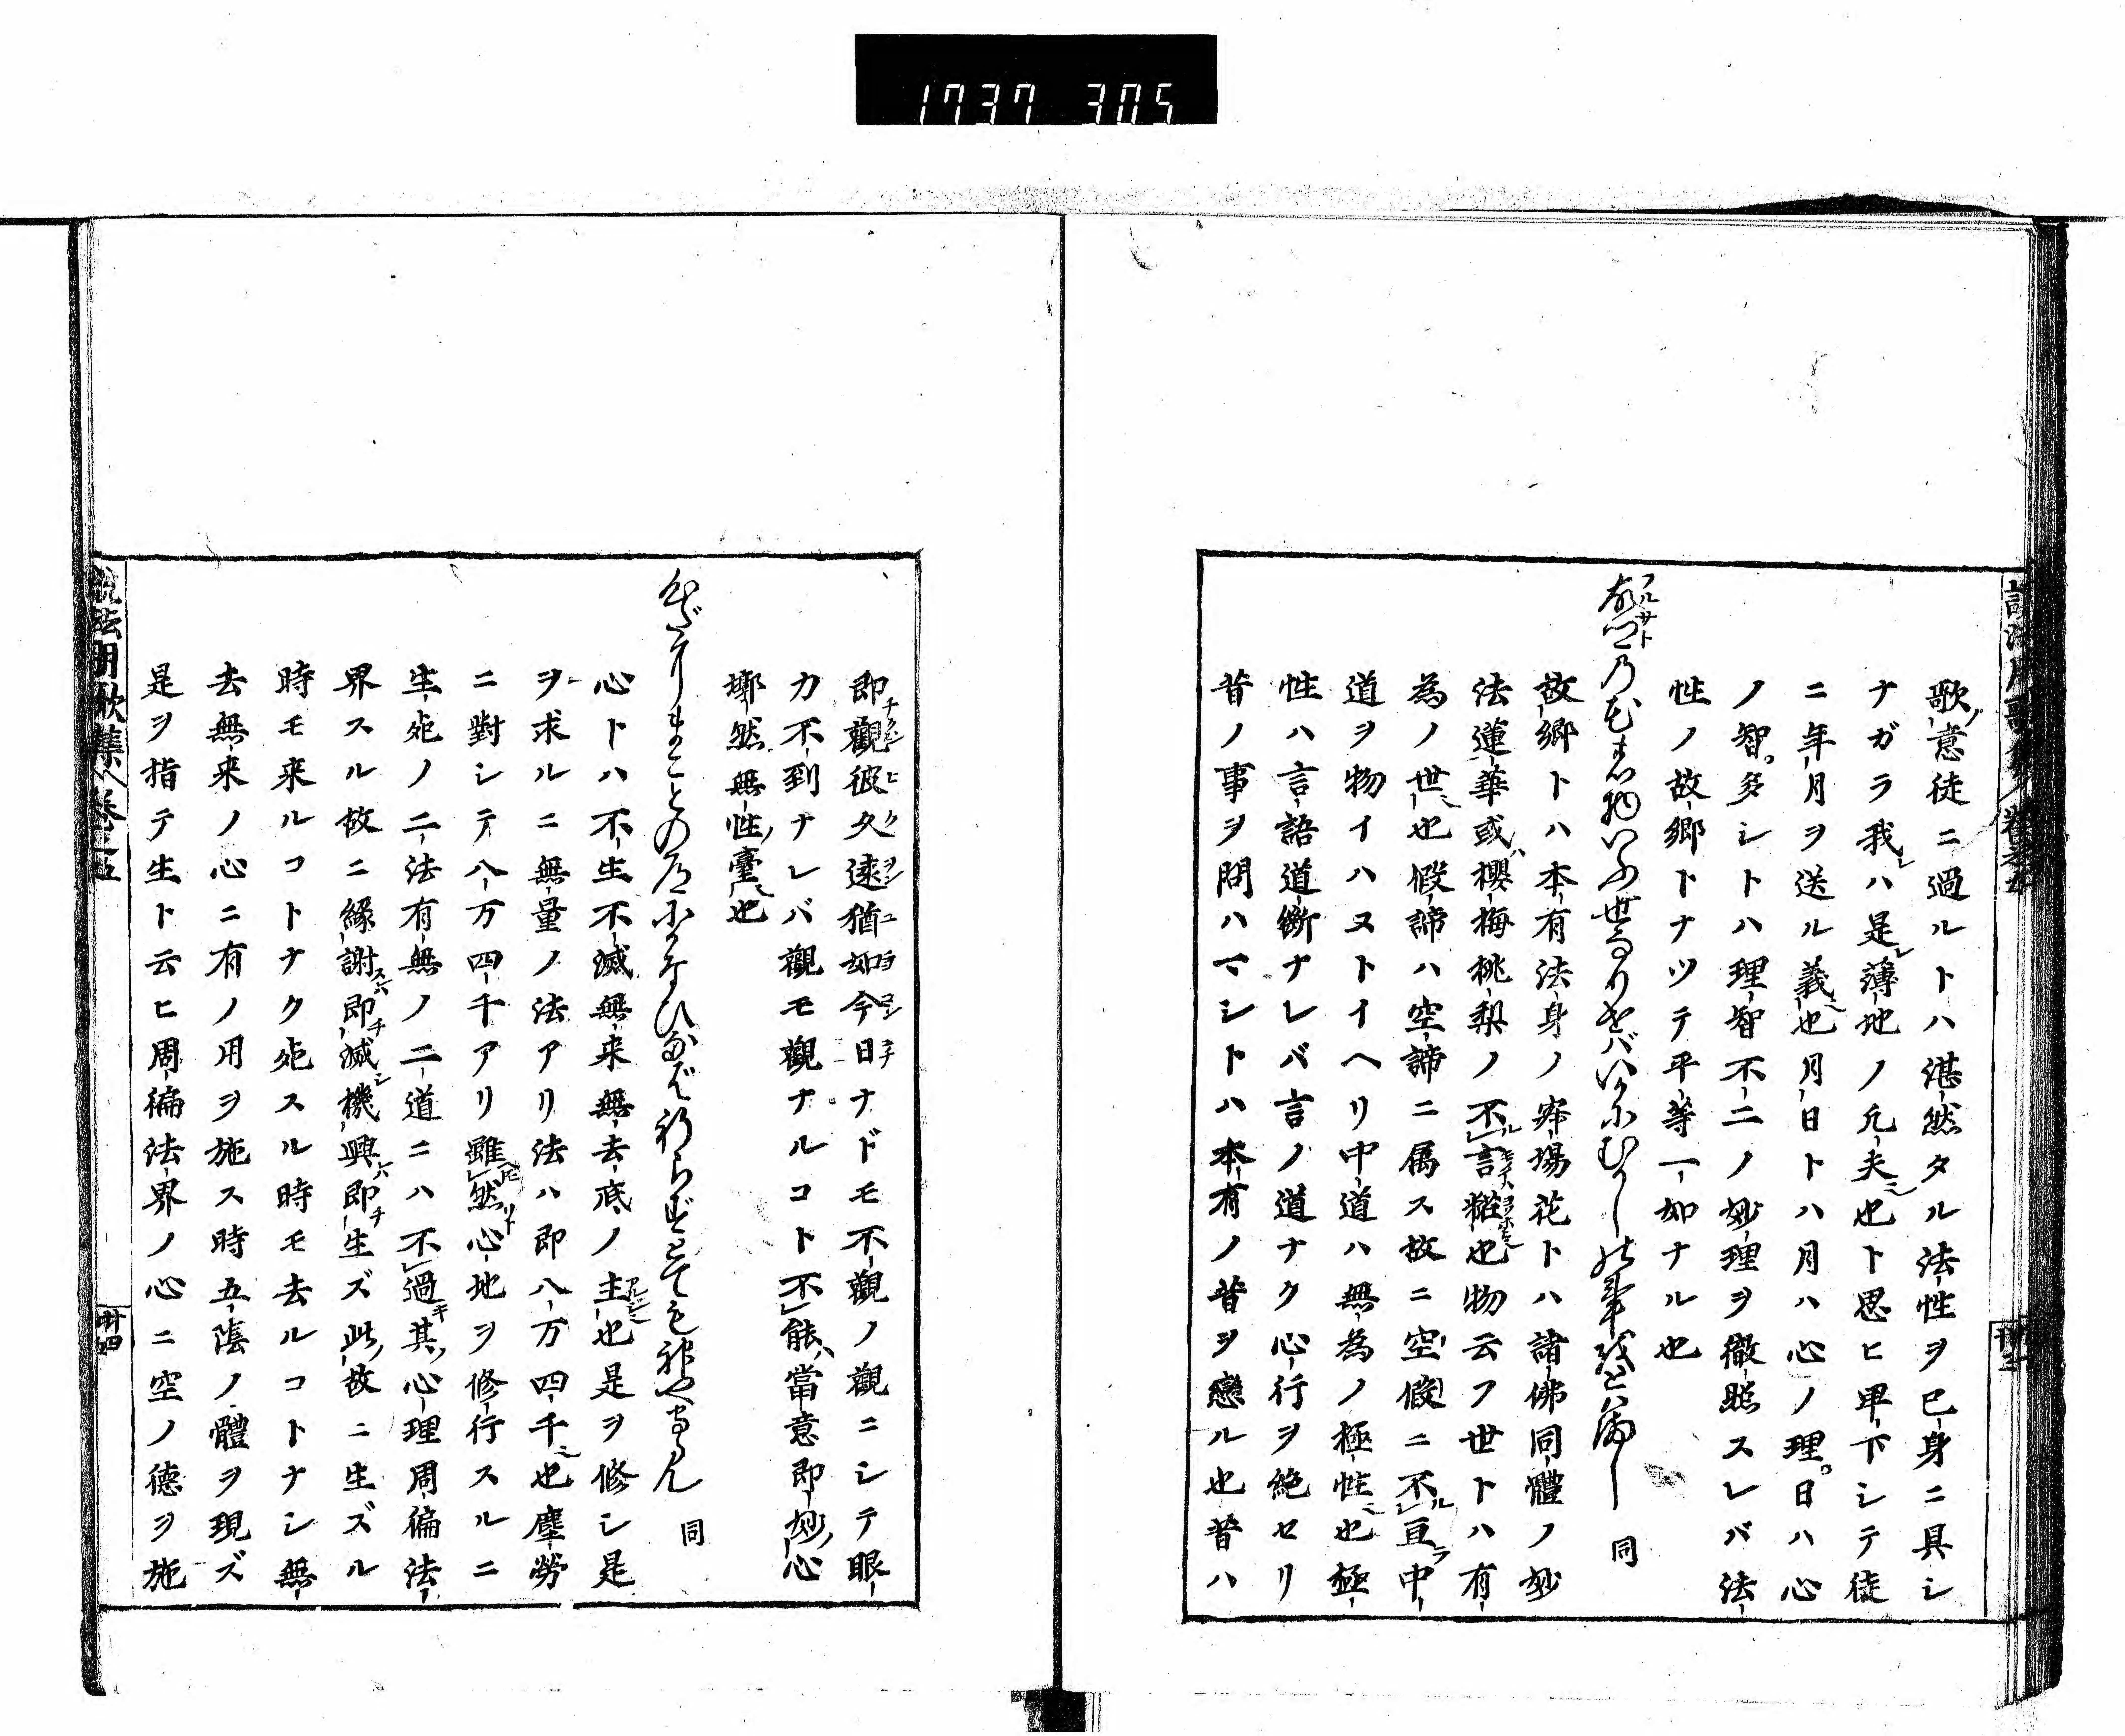 1737 305
歌ノ意徒ニ過ルトハ湛然タル法性ヲ已身ニ具シ
ナガラ我レハ是レ薄地ノ凡夫也ト思ヒ卑下シテ徒
ニ年月ヲ送ル義也月日トハ月ハ心ノ理。日ハ心
ノ智。多シトハ理智不二ノ妙理ヲ徹照スレバ法
性ノ故郷トナツテ平等一如ナル也
の花の物いふ世なりせばいかにむかしの事をとはまし 同
故郷トハ本有法身ノ寂場花トハ諸佛同體ノ妙
法蓮華或ハ櫻梅桃梨ノ不言糚也物云フ世トハ有
為ノ世也假諦ハ空諦ニ属ス故ニ空假ニ不亘中
道ヲ物イハストイヘリ中道ハ無為ノ極性也極
性ハ言語道斷ナレバ言ノ道ナク心行ヲ絶セリ
昔ノ事ヲ問ハマシトハ本有ノ昔ヲ戀ル也昔ハ
即觀彼久遠猶如今日ナドモ不觀ノ觀ニシテ眼
力不到ナレバ觀モ觀ナルコト不能ハ當意即妙ノ心
墎然無性ノ臺也
心だにまことの道にかなひなばいのらずとても神やまもらん 同
心トハ不生不滅無来無去底ノ主也是ヲ修シ是
ヲ求ルニ無量ノ法アリ法ハ即八万四千也塵勞
ニ對シテ八万四千アリ雖然心地ヲ修行スルニ
生死ノ二法有無ノ二道ニハ不過其ノ心理周徧法
界スル故ニ緣謝スレハ即チ滅シ機興レハ即チ生ズ此ノ故ニ生ズル
時モ来ルコトナク死スル時モ去ルコトナシ無
去無来ノ心ニ有ノ用ヲ施ス時五陰ノ體ヲ現ズ
是ヲ指テ生ト云ヒ周徧法界ノ心ニ空ノ德ヲ施
説法明歌集 卷之五
廿四